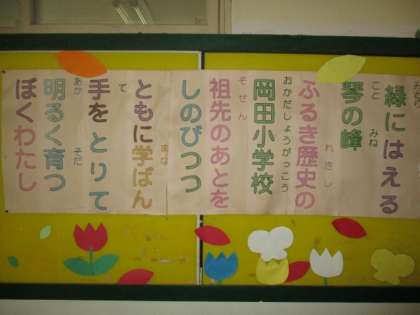 みど
緑にはえる
こと みね
琴の峰
れきし
ふるき歴史の
おかだしょうがっこう
岡田小学校
そせん
祖先のあとを
しのびつつ
まな
ともに学ばん
て
手をとりて
あか そだ
明るく育つ
ぼくわたし